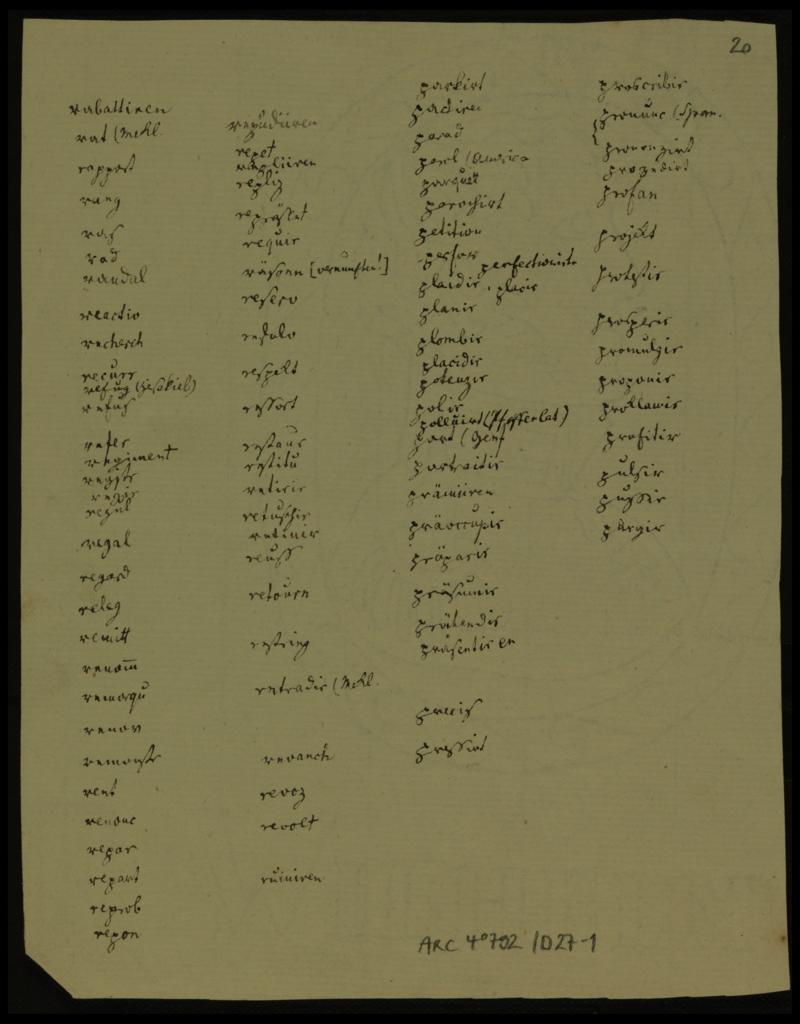 20
rabattiren
rat (Mekl.
rapport
rang
ras
rad
randal
reactiv
recherch
recurr
refug (Hesekiel)
refus
refer
regiment
registr
regul
regal
regard
releg
remitt
renom̅
remarqu
renov
remonstr
rent
renonc
repar
repart
reprob
repon
repudiiren
repet
repliz
repräsent
requir
räsonn [vernunften!]
reserv
resolv
respekt
ressort
restaur
restitu
retirir
retuschir
retinir
reuss
retourn
restring
retradir (Mekl.
revanch
revoz
revolt
ruiniren
parkirt
pactiren
parad
parl (America
parquett
parochirt
petition
perfectionirte
plaidir, placir
planir
plombir
placidir
potenzir
polir
port (Genf
portraitir
prämiiren
präoccupir
präparir
präsumir
prätendir
präsentiren
precis
pressirt
proscribir
pronunc (Span.
prononzirt
prozedirt
profan
projekt
protestir
prosperir
promulgir
proponir
proklamir
profitir
pulsir
pussir
purgir
ARC 4°792 /D27-1